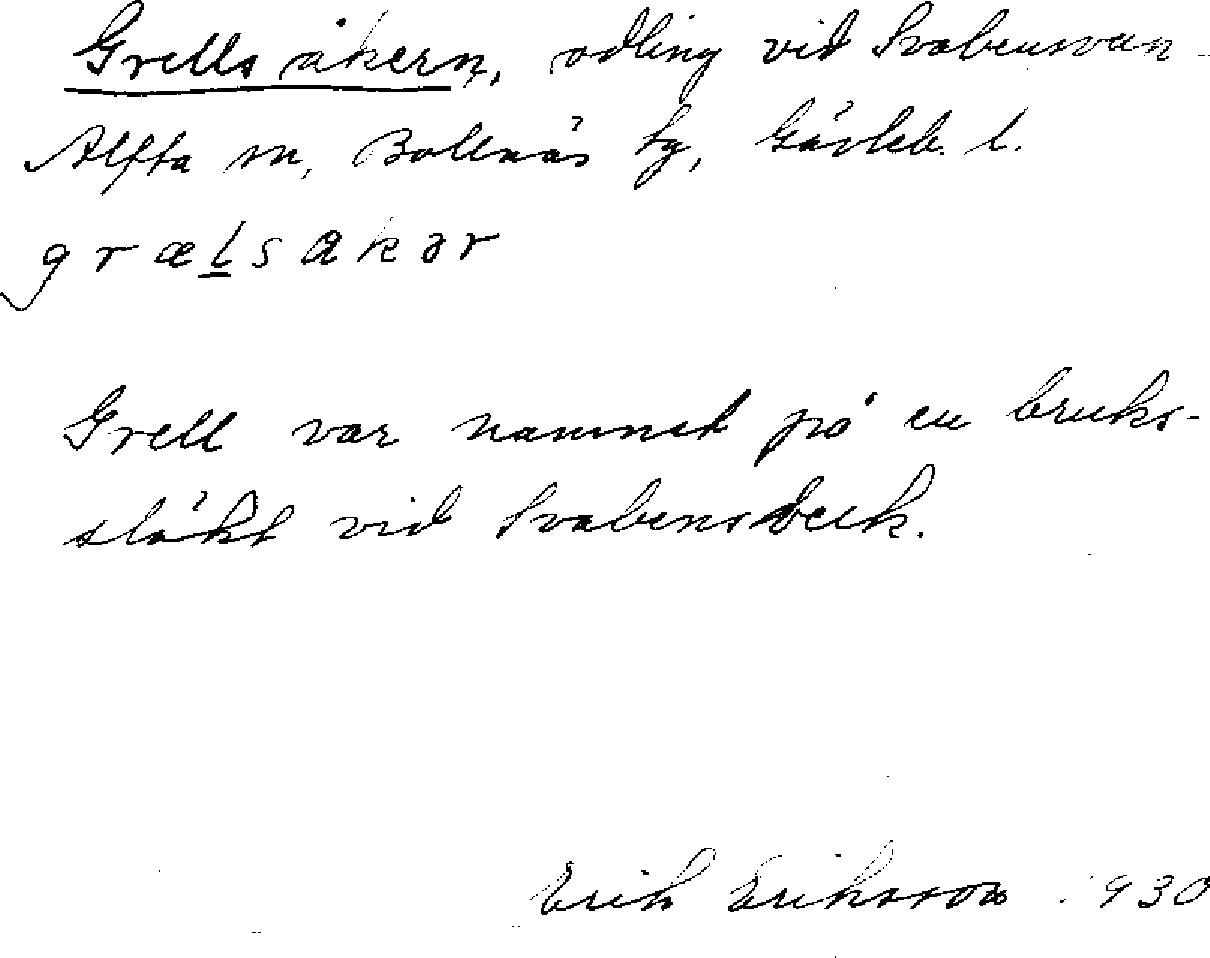 Grells åkern, odling vid Svabensvan-
Alfta sn, Bollnäs tg, Gävleb. l.
grælsakər
Grell var namnet på en bruks-
släkt vid Svabensverk.
Erik Eriksson 1930